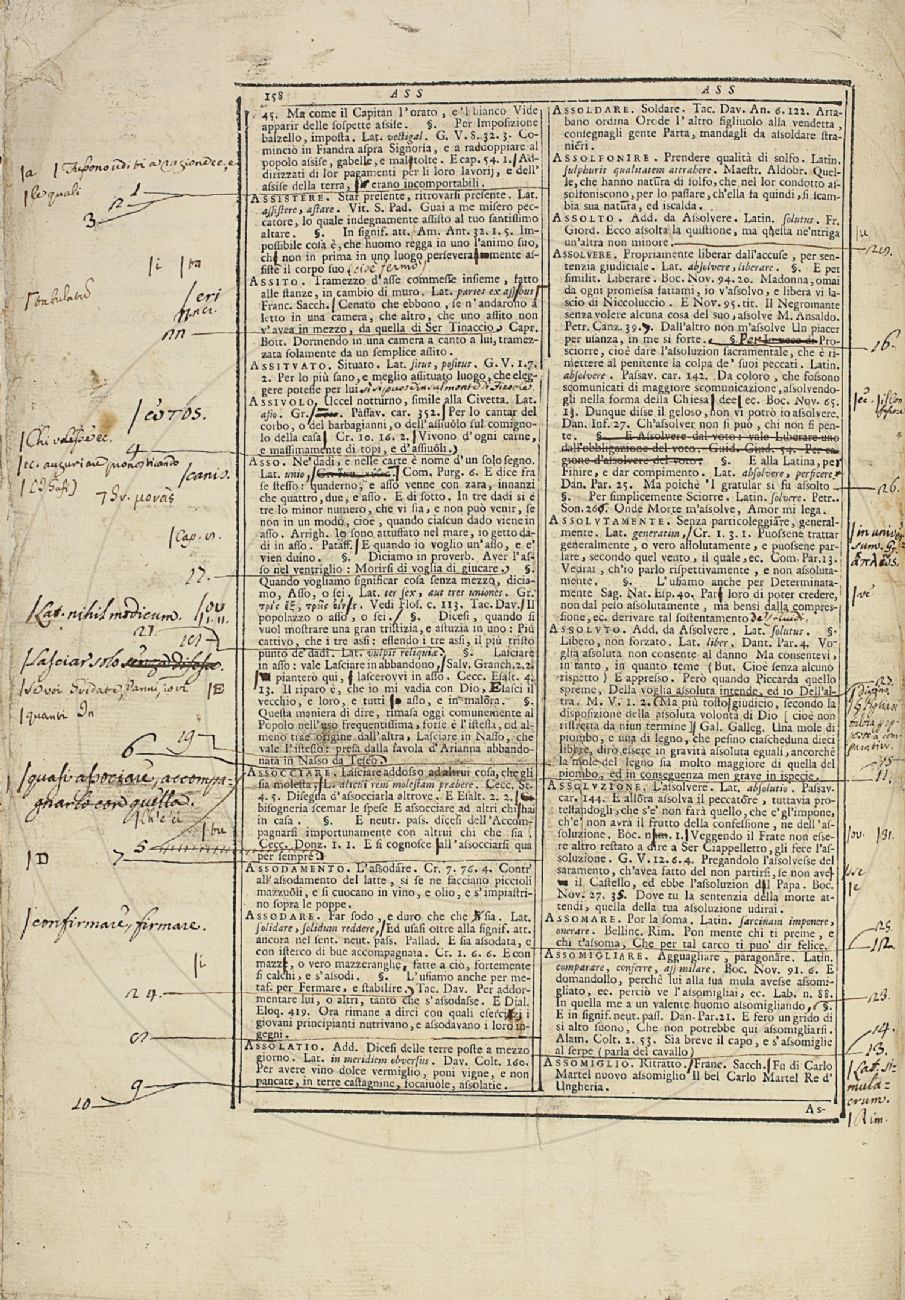 158
A S S
A S S
45. Ma come il Capitan l'orato, e'l bianco Vide
apparir delle sospette assise. §. Per Imposizione
balzello, imposta. Lat. vectigal. G. V. 8. 32. 3. Co-
minciò in Fiandra aspra Signoria, e a raddoppiare al
popolo assise, gabelle, e maltolte. E cap. 54. 1. Ad-
dirizzati di lor pagamenti per li loro lavorij, e dell'
assise della terra, erano incomportabili.
ASSISTERE. Star presente, ritrovarsi presente. Lat.
assistere, astare. Vit. S. Pad. Guai a me misero pec-
catore, lo quale indegnamente assisto al tuo santissimo
altare. §. In signif. att. Am. Ant. 32. 1. 5. Im-
possibile cosa è, che huomo regga in uno l'animo suo,
che non in prima in uno luogo perseverantemente as-
siste il corpo suo (cioè fermo)
ASSITO. Tramezzo d'asse commesse insieme, fatto
alle stanze, in cambio di muro. Lat. paries ex assibus
Franc. Sacch. Cenato che ebbono, se n'andarono a
letto in una camera, che altro, che uno assito non
v'avea in mezzo, da quella di Ser Tinaccio. Capr.
Bott. Dormendo in una camera a canto a lui, tramez-
zata solamente da un semplice assito.
ASSITUATO. Situato. Lat. situs, positus. G. V. 1. 7.
2. Per lo più sano, e meglio assituato luogo, che eleg-
gere potesse per lui
ASSIVOLO. Uccel notturno, simile alla Civetta. Lat.
asio. Gr. Passav. car. 352. Per lo cantar del
corbo, o del barbagianni, o dell'assiuolo sul comigno-
lo della casa Cr. 10. 16. 2. Vivono d'ogni carne,
e massimamente di topi, e d'assiuoli.
ASSO. Ne'dadi, e nelle carte è nome d'un solo segno.
Lat. unio, Com. Purg. 6. E dice fra
se stesso: quaderno, e asso venne con zara, innanzi
che quattro, due, e asso. E di sotto. In tre dadi si è
tre lo minor numero, che vi sia, e non può venir, se
non in un modo, cioè, quando ciascun dado viene in
asso. Arrigh. Io sono attuffato nel mare, io getto da-
di in asso. Pataff. E quando io voglio un'asso, e e'
vien duino. §. Diciamo in proverb. Aver l'as-
so nel ventriglio: Morirsi di voglia di giucare. §.
Quando vogliamo significar cosa senza mezzo, dicia-
mo, Asso, o sei. Lat. ter sex, aut tres uniones. Gr.
Vedi Flos. c. 113. Tac. Dav. Il
popolazzo o asso, o sei. §. Dicesi, quando si
vuol mostrare una gran tristizia, e astuzia in uno: Più
cattivo, che i tre assi: essendo i tre assi, il più tristo
punto de'dadi. Lat. vulpis reliquiæ. §. Lasciare
in asso: vale Lasciare in abbandono, Salv. Granch. 2. 2.
pianterò qui, lascerovvi in asso. Cecc. Esalt. 4.
13. Il riparo è, che io mi vadia con Dio, E lasci il
vecchio, e loro, e tutti asso, e in malora. §.
Questa maniera di dire, rimasa oggi comunemente al
Popolo nell'uso frequentissima, forse è l'istessa, ed al-
meno trae origine dall'altra, Lasciare in Nasso, che
vale l'istesso: presa dalla favola d'Arianna abbando-
nata in Nasso da Teseo.
ASSOCCIARE. Lasciare addosso ad altrui cosa, che gli
sia molesta. L. alicui rem molestam præbere. Cecc. St.
4. 5. Disegna d'assocciarla altrove. E Esalt. 2. 2.
bisogneria scemar le spese E assocciare ad altri chi hai
in casa. §. E neutr. pass. dicesi dell'Accom-
pagnarsi importunamente con altrui chi che sia.
Cecc. Donz. 1. 1. E si cognosce all'assocciarsi qua
per sempre.
ASSODAMENTO. L'assodare. Cr. 7. 76. 4. Contr'
all'assodamento del latte, si se ne facciano piccioli
mazzuoli, e si cuocano in vino, e olio, e s'impiastri-
no sopra le poppe.
ASSODARE. Far sodo, e duro che che sia. Lat.
solidare, solidum reddere, Ed usasi oltre alla signif. att.
ancora nel sent. neut. pass. Pallad. E sia assodata, e
con isterco di bue accompagnata. Cr. 1. 6. 6. E con
mazz, o vero mazzeranghe, fatte a ciò, fortemente
si calchi, e s'assodi. §. L'usiamo anche per me-
taf. per Fermare, e stabilire. Tac. Dav. Per addor-
mentare lui, o altri, tanto che s'assodasse. E Dial.
Eloq. 419. Ora rimane a dirci con quali esercizi i
giovani principianti nutrivano, e assodavano i loro in-
gegni.
ASSOLATIO. Add. Dicesi delle terre poste a mezzo
giorno. Lat. in meridiem obversus. Dav. Colt. 160.
Per avere vino dolce vermiglio, poni vigne, e non
pancate, in terre castagnine, focaiuole, assolatie.
ASSOLDARE. Soldare. Tac. Dav. An. 6. 122. Arta-
bano ordina Orode l'altro figliuolo alla vendetta,
consegnagli gente Parta, mandagli da assoldare stra-
nieri.
ASSOLFONIRE. Prendere qualità di solfo. Latin.
sulphuris qualitatem attrahere. Maestr. Aldobr. Quel-
le, che hanno natura di solfo, che nel lor condotto as-
solfoniscono, per lo passare, ch'ella fa quindi, si scam-
bia sua natura, ed iscalda.
ASSOLTO. Add. da Assolvere. Latin. solutus. Fr.
Giord. Ecco assolta la quistione, ma questa ne'ntriga
un'altra non minore.
ASSOLVERE. Propriamente liberar dall'accuse, per sen-
tenzia giudiciale. Lat. absolvere, liberare. §. E per
similit. Liberare. Boc. Nov. 94. 20. Madonna, omai
da ogni promessa fattami, io v'assolvo, e libera vi la-
scio di Niccoluccio. E Nov. 95. tit. Il Negromante
senza volere alcuna cosa del suo, assolve M. Ansaldo.
Petr. Canz. 39. 7. Dall'altro non m'assolve Un piacer
per usanza, in me sì forte. §. Per Pro-
sciorre, cioè dare l'assoluzion sacramentale, che è ri-
mettere al penitente la colpa de' suoi peccati. Latin.
absolvere. Passav. car. 142. Da coloro, che fossono
scomunicati di maggiore scomunicazione, assolvendo-
gli nella forma della Chiesa dee ec. Boc. Nov. 65.
13. Dunque disse il geloso, non vi potrò io assolvere.
Dan. Inf. 27. Ch'assolver non si può, chi non si pen-
te. §. E Assolvere dal voto: vale Liberare uno
dall'obbligazione del voto. Guid. Giud. 54. Per ca-
gione d'assolvere del voto. §. E alla Latina, per
Finire, e dar compimento. Lat. absolvere, perficere.
Dan. Par. 25. Ma poichè 'l gratular si fu assolto
§. Per simplicemente Sciorre. Latin. solvere. Petr.
Son. 266. Onde Morte m'assolve, Amor mi lega.
ASSOLVTAMENTE. Senza particoleggiare, general-
mente. Lat. generatim, Cr. 1. 3. 1. Puossene trattar
generalmente, o vero assolutamente, e puossene par-
lare, secondo quel vento, il quale, ec. Com. Par. 13.
Vedrai, ch'io parlo rispettivamente, e non assoluta-
mente. §. L'usiamo anche per Determinata-
mente Sag. Nat. Esp. 40. Par loro di poter credere,
non dal peso assolutamente, ma bensì dalla compres-
sione, ec. derivare tal sostentamento de' fluidi.
ASSOLVTO. Add. da Assolvere. Lat. solutus. §.
Libero, non forzato. Lat. liber. Dant. Par. 4. Vo-
glia assoluta non consente al danno Ma consentevi,
in tanto, in quanto teme (But. Cioè senza alcuno
rispetto) E appresso. Però quando Piccarda quello
spreme, Della voglia assoluta intende, ed io Dell'al-
tra. M. V. 1. 2. (Ma più tosto giudicio, secondo la
disposizione della assoluta volontà di Dio [ cioè non
ristretta da niun termine] Gal. Galleg. Una mole di
piombo, e una di legno, che pesino ciascheduna dieci
libbre, dirò essere in gravità assoluta eguali, ancorchè
la mole del legno sia molto maggiore di quella del
piombo, ed in conseguenza men grave in ispecie.
ASSOLVZIONE. L'assolvere. Lat. absolutio. Passav.
car. 144. E allora assolva il peccatore, tuttavia pro-
testandogli, che s'e' non farà quello, che e'gl'impone,
ch'e' non avrà il frutto della confessione, ne dell'as-
soluzione. Boc. n. 1. Veggendo il Frate non esse-
re altro restato a dire a Ser Ciappelletto, gli fece l'as-
soluzione. G. V. 12. 6. 4. Pregandolo l'assolvesse del
saramento, ch'avea fatto del non partirsi, se non ave
il Castello, ed ebbe l'assoluzion dal Papa. Boc.
Nov. 27. 35. Dove tu la sentenzia della morte at-
tendi, quella della tua assoluzione udirai.
ASSOMARE. Por la soma. Latin. sarcinam imponere,
onerare. Bellinc. Rim. Pon mente chi ti preme, e
chi t'assoma, Che per tal carco ti puo' dir felice.
ASSOMIGLIARE. Agguagliare, paragonare. Latin.
comparare, conferre, assimilare. Boc. Nov. 91. 6. E
domandollo, perchè lui alla sua mula avesse assomi-
gliato, ec. perciò ve l'assomigliai, ec. Lab. n. 88.
In quella me a un valente huomo assomigliando, §.
E in signif. neut. pass. Dan. Par. 21. E fero un grido di
sì alto suono, Che non potrebbe qui assomigliarsi.
Alam. Colt. 2. 53. Sia breve il capo, e s'assomiglie
al serpe (parla del cavallo)
ASSOMIGLIO. Ritratto. Franc. Sacch. Fu di Carlo
Martel nuovo assomiglio Il bel Carlo Martel Re d'
Ungheria.
As-
le quali
1
2
3
Chi volesse ec.
4
ec. augurj
Cap.
17.
Lat. nihil modicum.
21
Lasciar solo senza difesa
quanti In
19
6
quasi associare, accompa-
gnarlo con quella.
5
7
D
confirmare, firmare.
24.
9
10
16.
26.
11.
25.
12.
23.
14.
13.
Lat. si-
mula-
crum.
Rim.